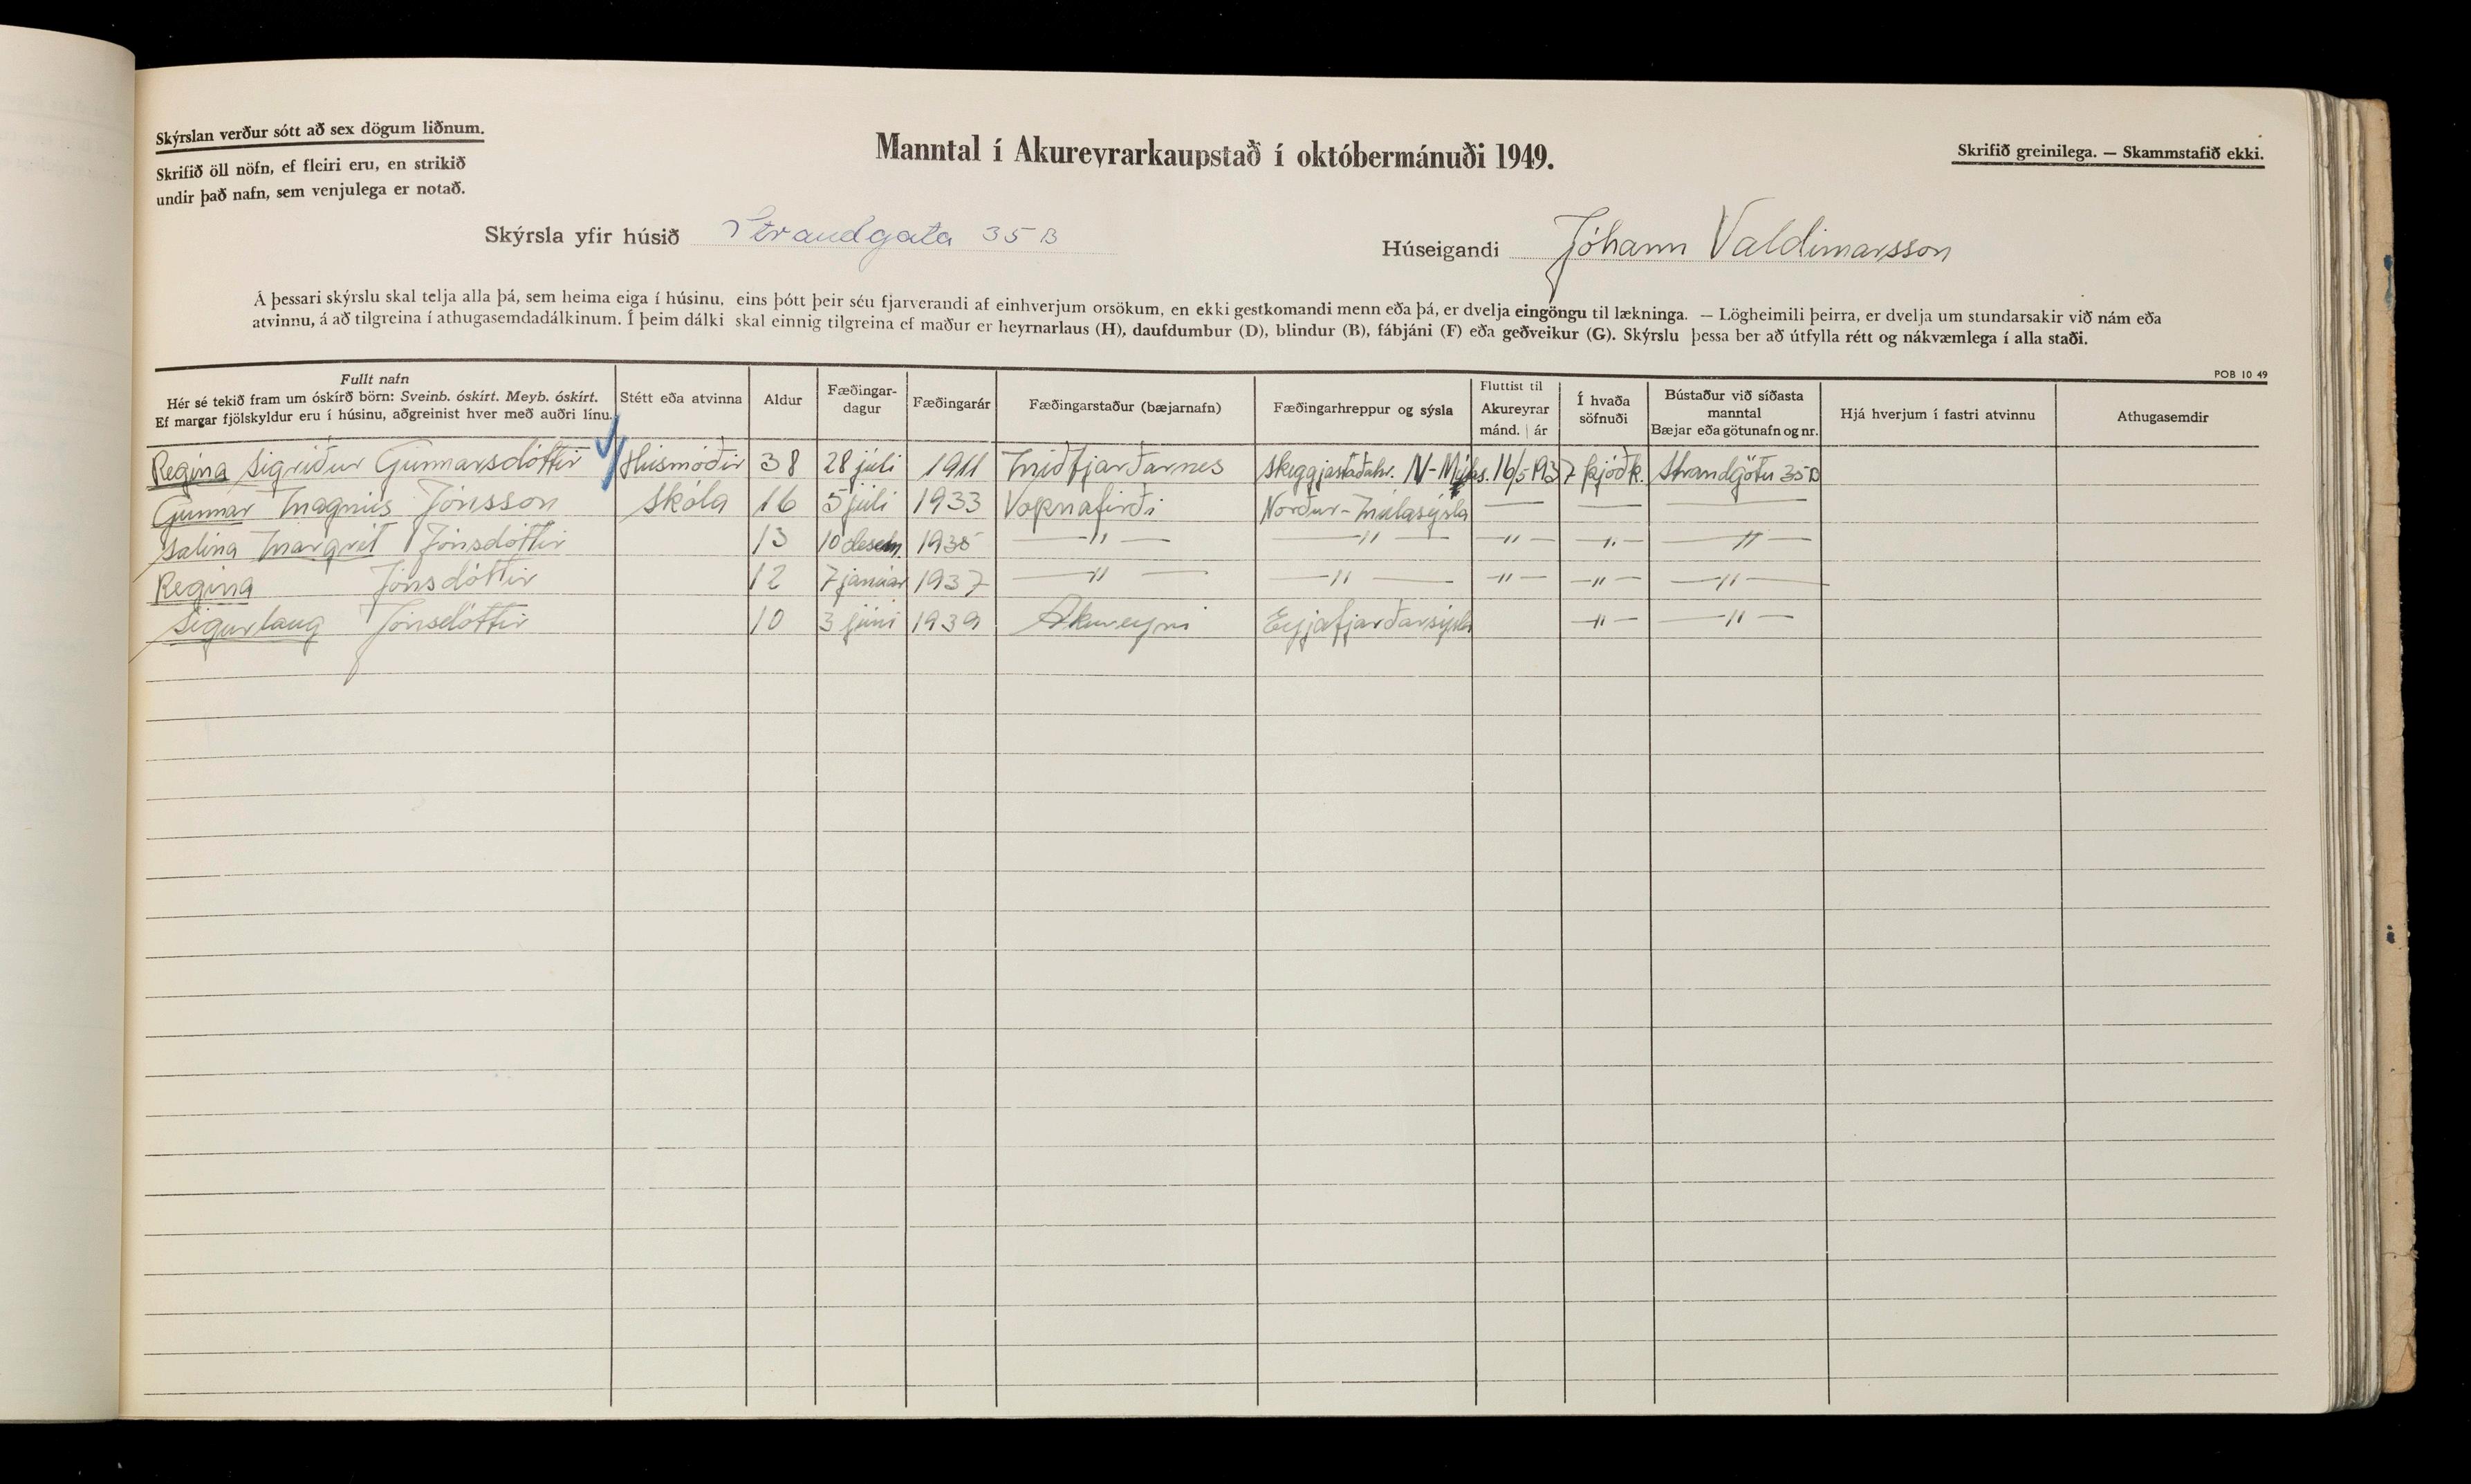 Skýrslan verður sótt að sex dögum liðnum.
Skrifið öll nöfn, ef fleiri eru, en strikið
undir það nafn, sem venjulega er notað.
Manntal í Akureyrarkaupstað í októbermánuði 1949.
Skrifið greinilega. — Skammstafið ekki.
Skýrsla yfir húsið Strandgata 35 B
Húseigandi Jóhann Valdimarsson
Á þessari skýrslu skal telja alla þá, sem heima eiga í húsinu, eins þótt þeir séu fjarverandi af einhverjum orsökum, en ekki gestkomandi menn eða þá, er dvelja eingöngu til lækninga. — Lögheimili þeirra, er dvelja um stundarsakir við nám eða
atvinnu, á að tilgreina í athugasemdadálkinum. Í þeim dálki skal einnig tilgreina ef maður er heyrnarlaus (H), daufdumbur (D), blindur (B), fábjáni (F) eða geðveikur (G). Skýrslu þessa ber að útfylla rétt og nákvæmlega í alla staði.
POB 10 49
Fullt nafn
Hér sé tekið fram um óskírð börn: Sveinb. óskírt. Meyb. óskírt.
Ef margar fjölskyldur eru í húsinu, aðgreinist hver með auðri línu.
Stétt eða atvinna
Aldur
Fæðingar-
dagur
Fæðingarár
Fæðingarstaður (bæjarnafn)
Fæðingarhreppur og sýsla
Fluttist til
Akureyrar
mánd. | ár
Í hvaða
söfnuði
Bústaður við síðasta
manntal
Bæjar eða götunafn og nr.
Hjá hverjum í fastri atvinnu
Athugasemdir
Regína Sigríður Gunnarsdóttir Húsmóðir 38 28 júli 1911 Miðfjarðarnes Skeggjastaðahr. N-Múlas. 16/5 1937 þjóðk. Strandgötu 35 B
Gunnar Magnús Jónsson Skóla 16 5 júli 1933 Vopnafirði Norður-Múlasýsla — — —
Salína Margrét Jónsdóttir 13 10 desem. 1935 —"— —"— —"— —"— —"—
Regína Jónsdóttir 12 7 janúar 1937 —"— —"— —"— —"— —"—
Sigurlaug Jónsdóttir 10 3 júni 1939 Akureyri Eyjafjarðarsýsla —"— —"—